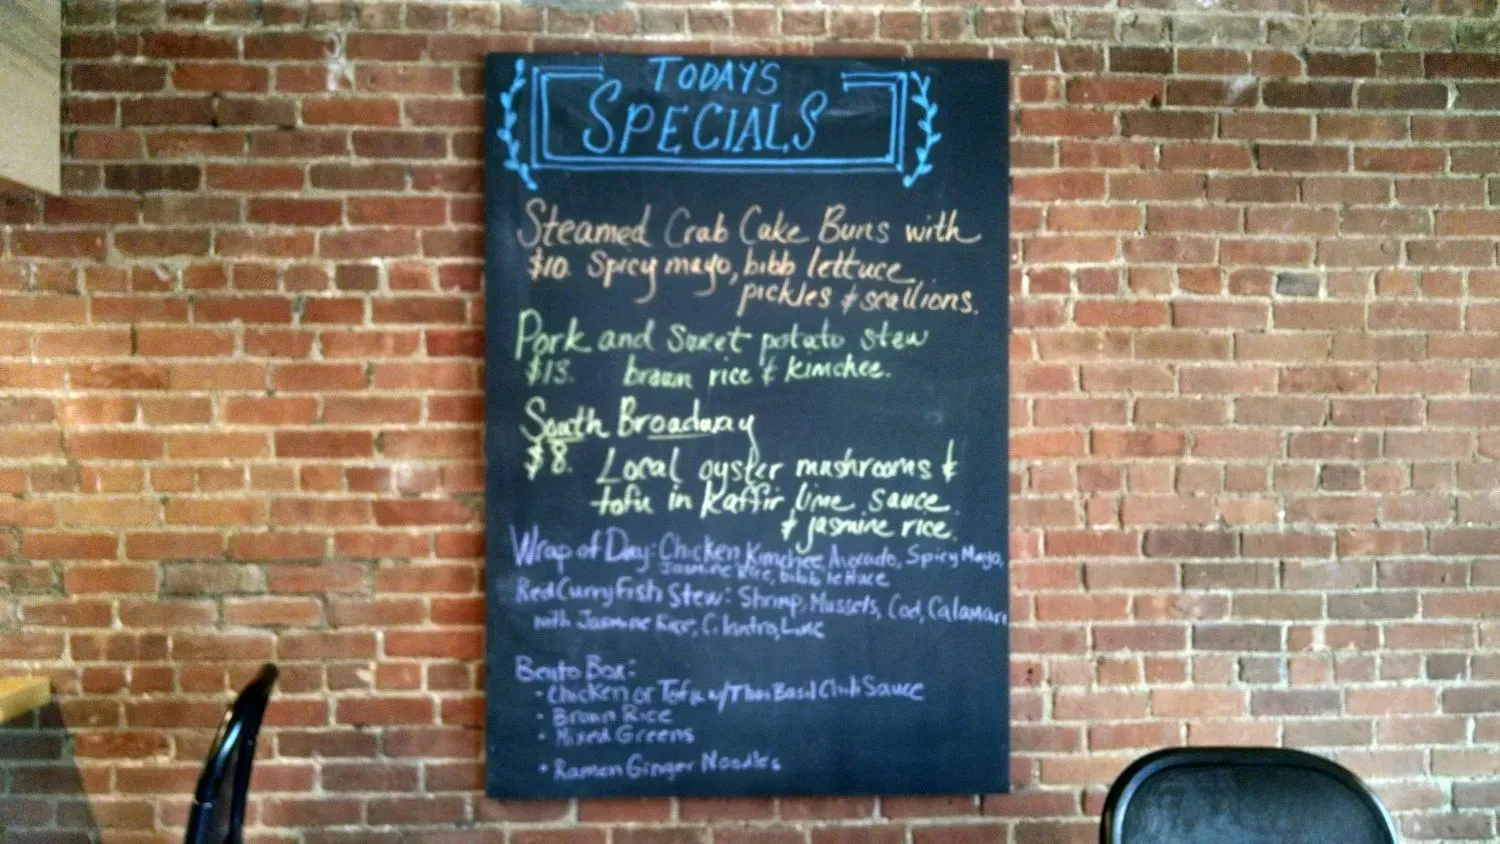 TODAY'S
SPECIALS
Steamed Crab Cake Buns with
$10. Spicy mayo, bibb lettuce
pickles & scallions.
Pork and sweet potato stew
$13. brown rice & kimchee.
South Broadway
$8. Local oyster mushrooms &
tofu in Kaffir lime sauce
& jasmine rice.
Wrap of Day: Chicken Kimchee Avocado, Spicy Mayo,
Jasmine Rice, bibb lettuce
Red Curry Fish Stew: Shrimp, Mussels, Cod, Calamari
with Jasmine Rice, Cilantro, Lime
Bento Box:
• Chicken or Tofu w/Thai Basil Chili Sauce
• Brown Rice
• Mixed Greens
• Ramen Ginger Noodles